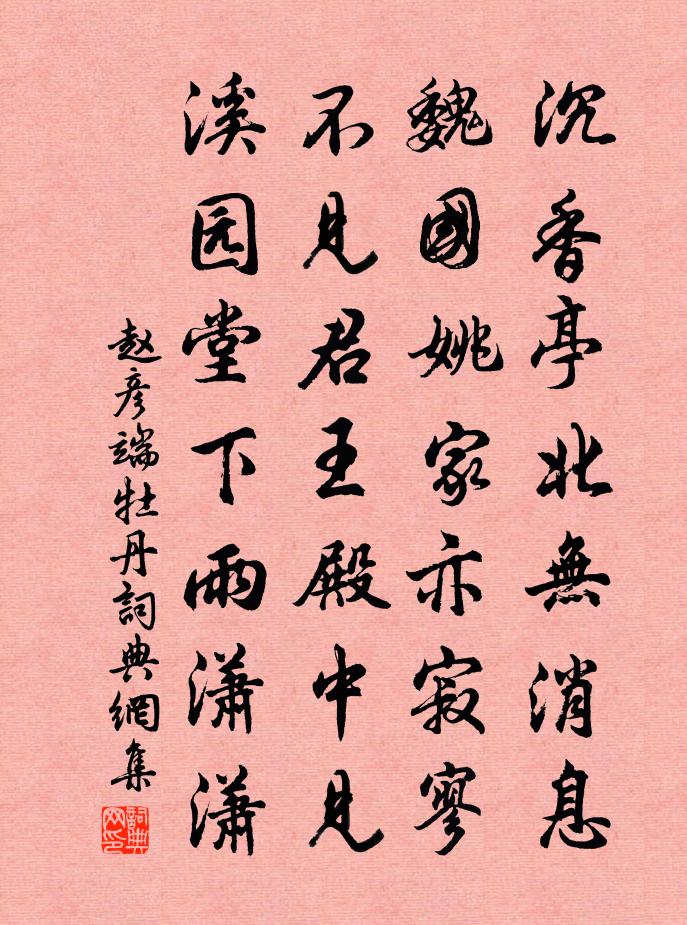 沉香亭北無消息
魏國姚家亦寂寥
不見君王殿中見
溪园堂下雨潇潇
赵彦端牡丹詞典網集
詞典网印